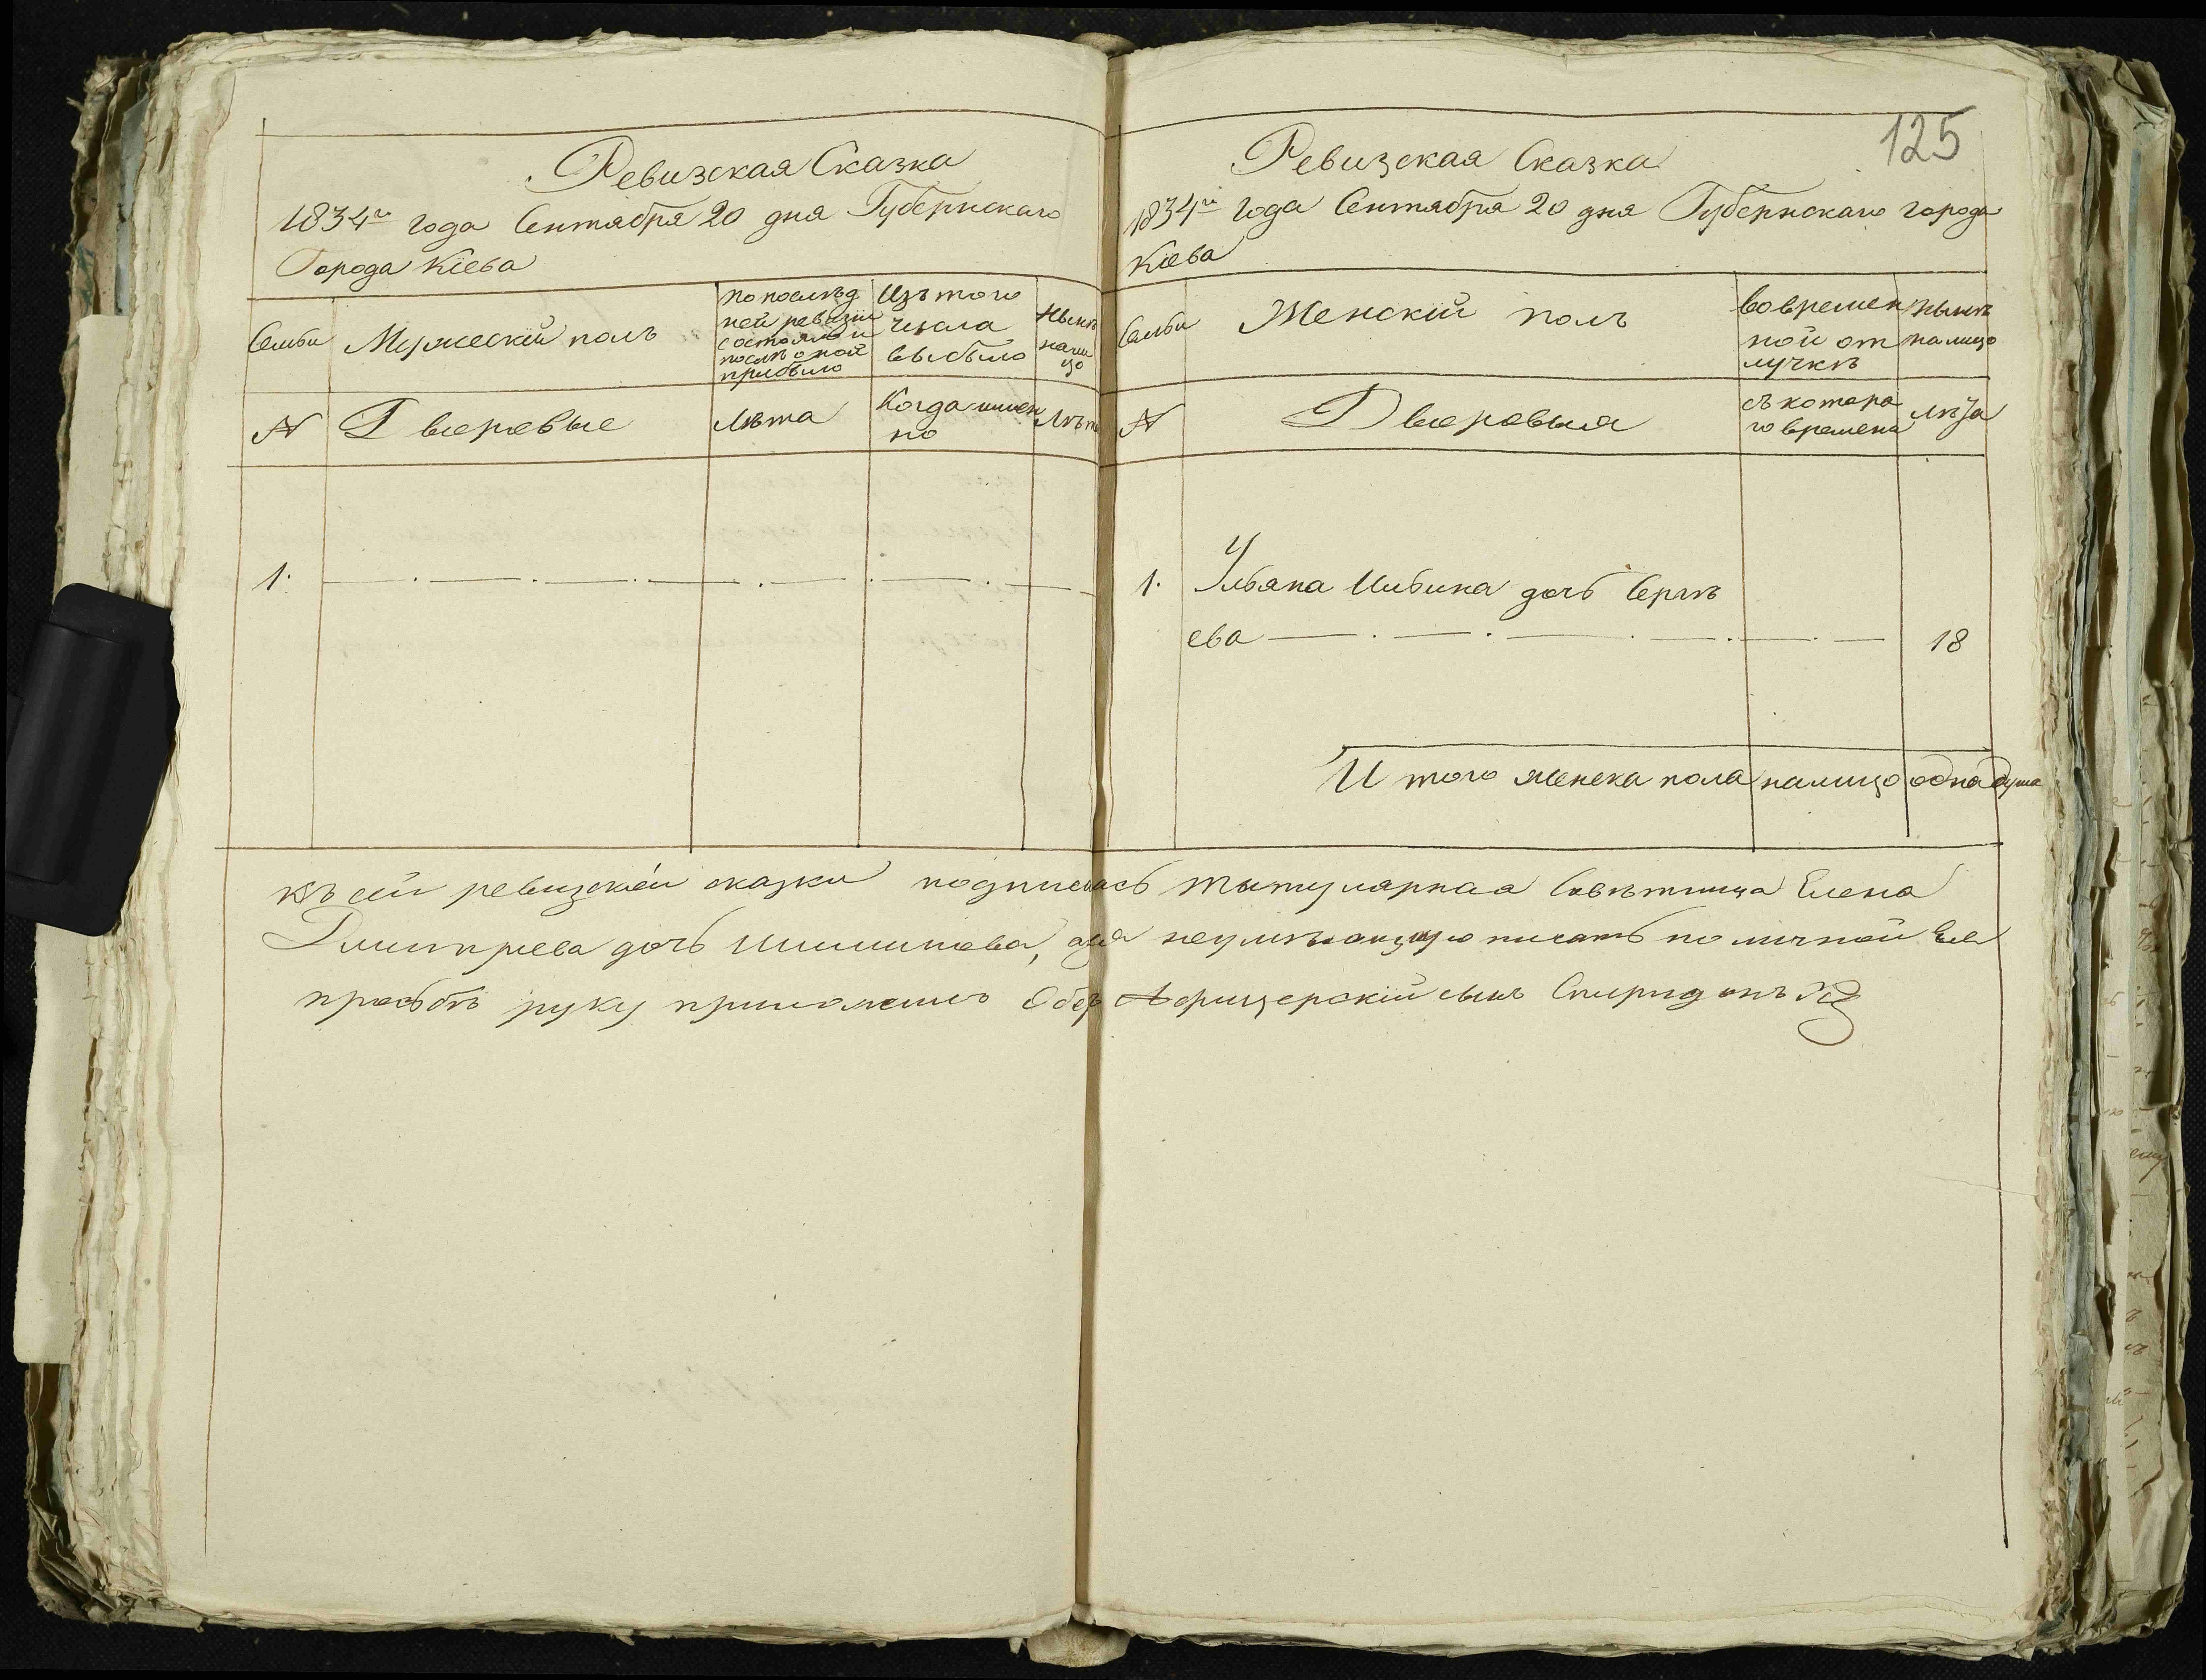 Ревизская Сказка
1834го года Сентября 20 дня Губернскаго
Города Кіева
Семьи
Мужескій полъ
по послѣд
ней ревизіи
состояло и
послѣ оной
прибыло
Изъ того
числа
выбыло
Нынѣ
нали
цо
№
Дворовые
Лѣта
Когда имен
но
Лѣта
1.
125
Ревизская Сказка
1834го года Сентября 20 дня Губернскаго города
Кіева
Семьи
Женскій полъ
Во времен
ной от
лучкѣ
Нынѣ
на лицо
№
Дворовыя
съ котора
го времена
лѣта
1. Ульяна дочь Сергѣ
ева 18
И того женска пола на лицо одна душа
Къ сей ревизской сказки подписась титулярная Совѣтница Елена
Дмитріева дочь а за неумѣющую писать по личной Ея
просьбѣ руку приложилъ Обер Афицерскій сынъ Спиридонъ